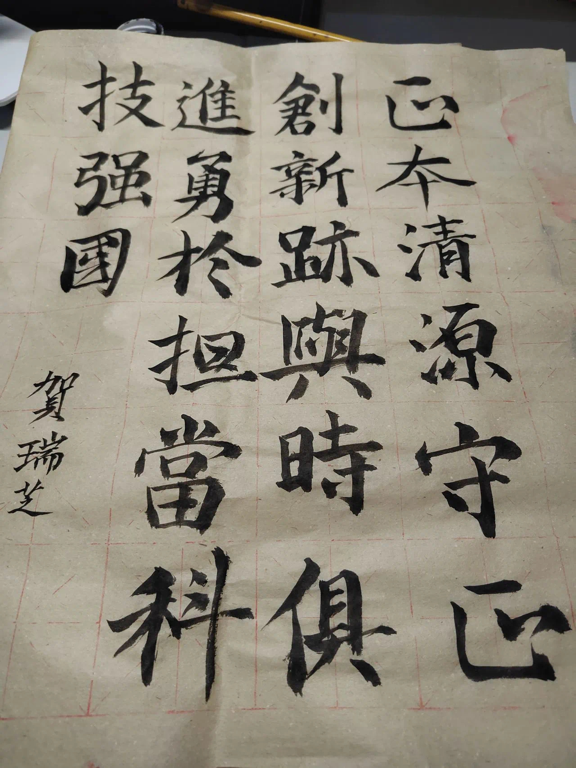 正本清源守正
創新跡與時俱
進勇於担當科
技强國
賀瑞芝